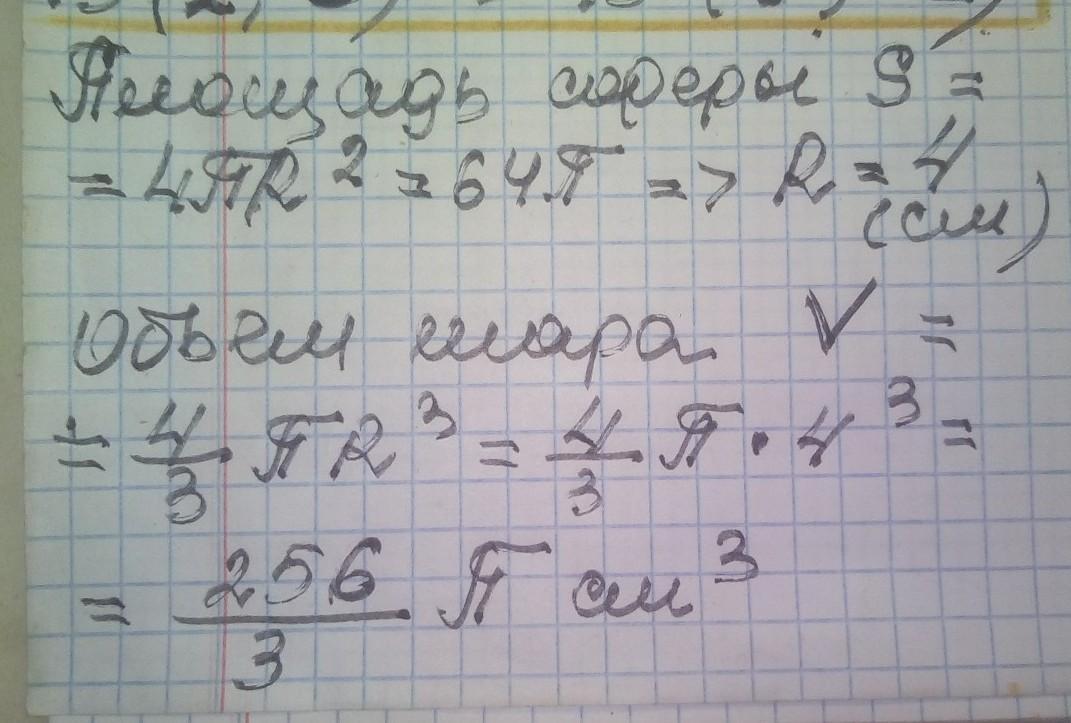 Площадь сферы S =
= 4πR² = 64π => R = 4
(см)
Объем шара V =
= 4/3 πR³ = 4/3 π · 4³ =
= 256/3 π см³